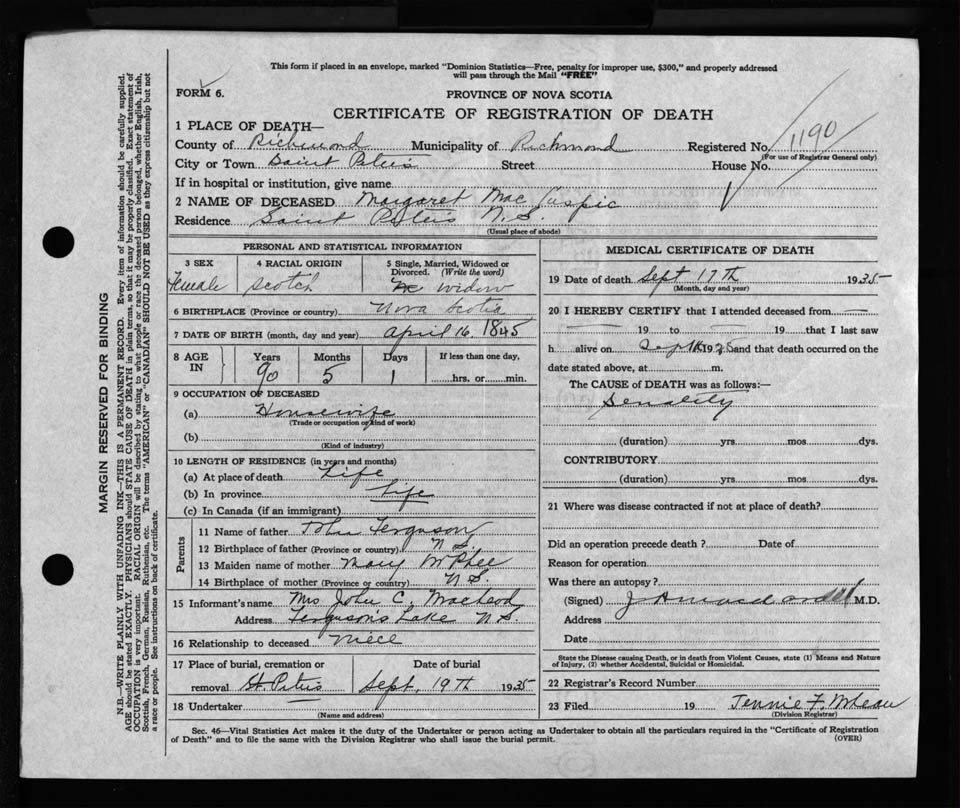 This form if placed in an envelope, marked "Dominion Statistics—Free, penalty for improper use, $300," and properly addressed
will pass through the Mail "FREE"
FORM 6.
PROVINCE OF NOVA SCOTIA
CERTIFICATE OF REGISTRATION OF DEATH
1 PLACE OF DEATH—
County of Richmond Municipality of Richmond Registered No. 1190
(For use of Registrar General only)
City or Town Saint Peters Street House No.
If in hospital or institution, give name
2 NAME OF DECEASED Margaret Mac Cuspic
Residence Saint Peters N.S.
(Usual place of abode)
PERSONAL AND STATISTICAL INFORMATION
3 SEX 4 RACIAL ORIGIN 5 Single, Married, Widowed or Divorced. (Write the word)
Female Scotch Widow
6 BIRTHPLACE (Province or country) Nova Scotia
7 DATE OF BIRTH (month, day and year) April 16, 1845
8 AGE IN Years Months Days If less than one day,
90 5 1 hrs. or min.
9 OCCUPATION OF DECEASED
(a) Housewife
(Trade or occupation or kind of work)
(b)
(Kind of industry)
10 LENGTH OF RESIDENCE (in years and months)
(a) At place of death Life
(b) In province Life
(c) In Canada (if an immigrant)
Parents
11 Name of father John Ferguson
12 Birthplace of father (Province or country) N S.
13 Maiden name of mother Mary McPhee
14 Birthplace of mother (Province or country) N S.
15 Informant's name Mrs John C. MacLeod
Address Fergusons Lake N S.
16 Relationship to deceased niece
17 Place of burial, cremation or Date of burial
removal St. Peters Sept. 19th 1935
18 Undertaker
(Name and address)
MEDICAL CERTIFICATE OF DEATH
19 Date of death Sept 17th 1935
(Month, day and year)
20 I HEREBY CERTIFY that I attended deceased from
19 to 19 that I last saw
h alive on Sept 1935 and that death occurred on the
date stated above, at m.
The CAUSE of DEATH was as follows:—
Senality
(duration) yrs. mos. dys.
CONTRIBUTORY
(duration) yrs. mos. dys.
21 Where was disease contracted if not at place of death?
Did an operation precede death? Date of
Reason for operation
Was there an autopsy?
(Signed) M.D.
Address
Date
State the Disease causing Death, or in death from Violent Causes, state (1) Means and Nature
of Injury, (2) whether Accidental, Suicidal or Homicidal.
22 Registrar's Record Number
23 Filed 19 Jennie F.
(Division Registrar)
Sec. 46—Vital Statistics Act makes it the duty of the Undertaker or person acting as Undertaker to obtain all the particulars required in the "Certificate of Registration
of Death" and to file the same with the Division Registrar who shall issue the burial permit.
(OVER)
MARGIN RESERVED FOR BINDING
N.B.—WRITE PLAINLY WITH UNFADING INK—THIS IS A PERMANENT RECORD. Every item of information should be carefully supplied.
AGE should be stated EXACTLY. PHYSICIANS should STATE CAUSE OF DEATH in plain terms, so that it may be properly classified. Exact statement of
OCCUPATION is very important. RACIAL ORIGIN will be described by stating to what people or race the deceased person belonged, whether English, Irish,
Scottish, French, German, Russian, Ruthenian, etc. The terms "AMERICAN" or "CANADIAN" SHOULD NOT BE USED as they express citizenship but not
a race or people. See instructions on back of certificate.